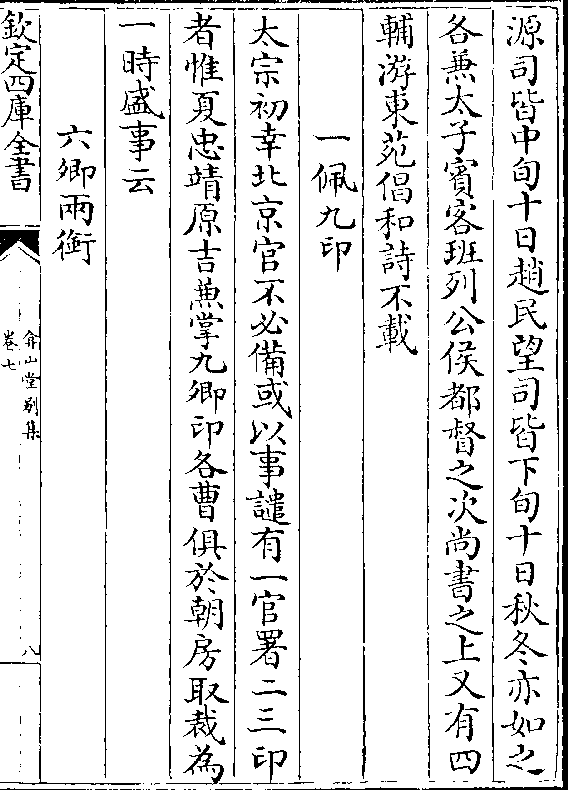 源司皆中旬十日趙民望司皆下旬十日秋冬亦如之
各兼太子賓客班列公侯都督之次尚書之上又有四
輔游東苑倡和詩不載
一佩九印
太宗初幸北京官不必備或以事譴有一官署二三印
者惟夏忠靖原吉兼掌九卿印各曹俱於朝房取裁為
一時盛事云
六卿兩銜
欽定四庫全書
弇山堂别集
卷七
八